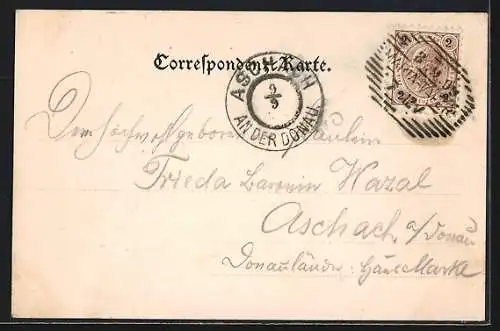 Correspondenz-Karte.
ASCHACH
9/9
AN DER DONAU
2 2
Der Hochwohlgeboren Fräulein
Frieda Baronin Wazal
Aschach a/Donau
Donaulände: